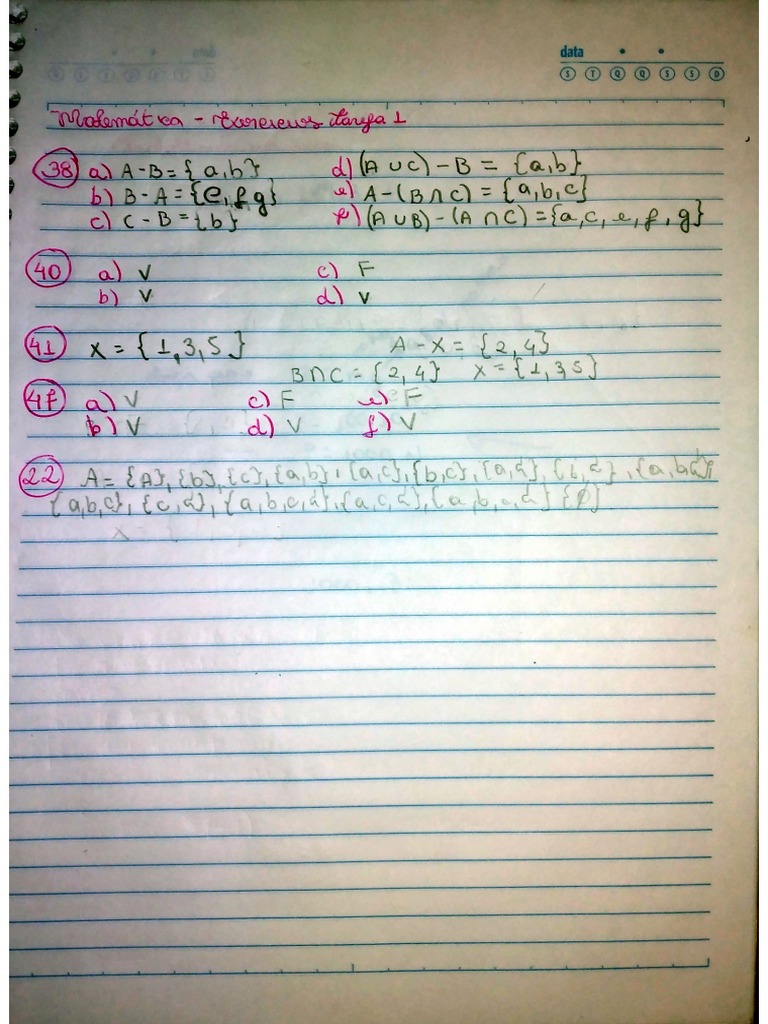 data
S T Q Q S S D
Matemática - Exercícios Tarefa 1
38 a) A-B = {a,b} d) (A ∪ C) - B = {a,b}
b) B - A = {e, f, g} e) A - (B ∩ C) = {a,b,c}
c) C - B = {b} f) (A ∪ B) - (A ∩ C) = {a, c, e, f, g}
40 a) V c) F
b) V d) V
41 X = {1,3,5} A - X = {2,4}
B ∩ C = {2,4} X = {1,3,5}
47 a) V c) F e) F
b) V d) V f) V
22 A = {A}, {b}, {c}, {a,b}, {a,c}, {b,c}, {a,d}, {b,d}, {a,b,d},
{a,b,c}, {c,d}, {a,b,c,d}, {a,c,d}, {a,b,c,d} {∅}